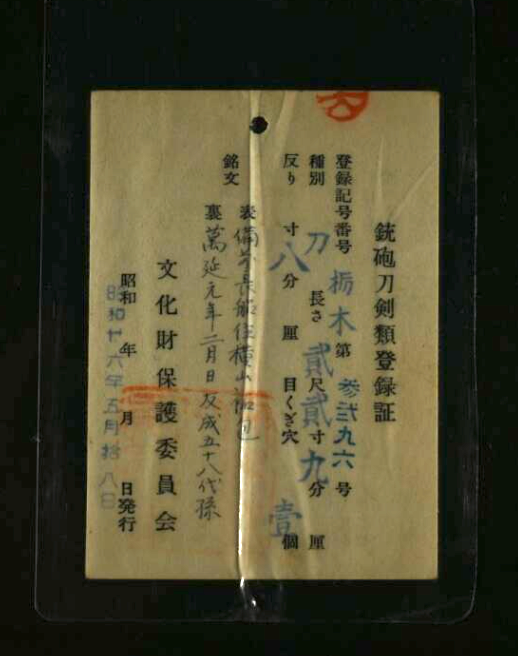 銃砲刀剣類登録証
登録記号番号 栃木 第 参弐九六 号
種別 刀 長さ 貳尺貳寸九分 厘
反り 寸八分 厘 目くぎ穴 壹個
銘文 表 備前長船住横山祐包
裏 萬延元年二月日友成五十八代孫
文化財保護委員会
昭和 年 月 日発行
昭和廿六年五月拾八日